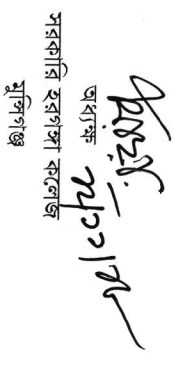 অধ্যক্ষ
সরকারি হরগঙ্গা কলেজ
মুন্সিগঞ্জ